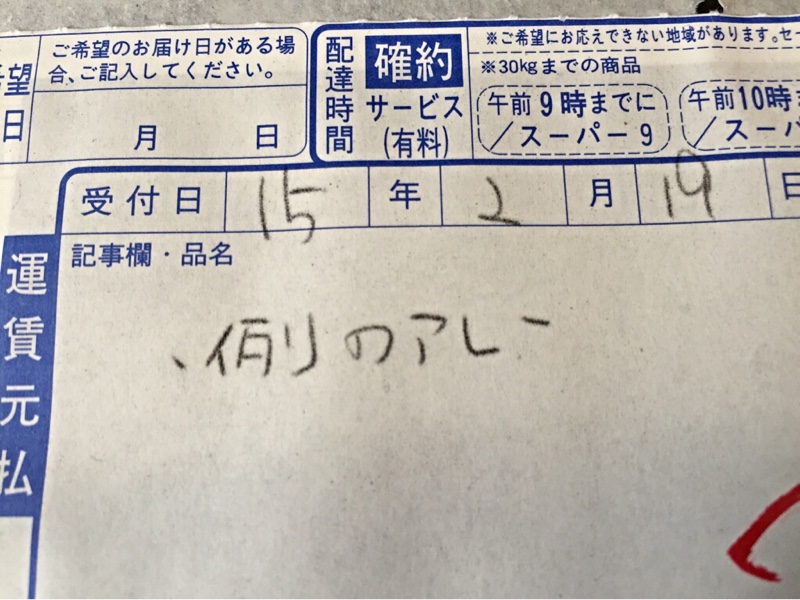 ご希望のお届け日がある場
合、ご記入してください。
月 日
望
日
配達時間
確約
サービス
(有料)
※ご希望にお応えできない地域があります。セー
※30kgまでの商品
午前9時までに
/スーパー9
午前10時ま
/スーパ
受付日 15 年 2 月 19 日
記事欄・品名
、例のアレー
運賃元払